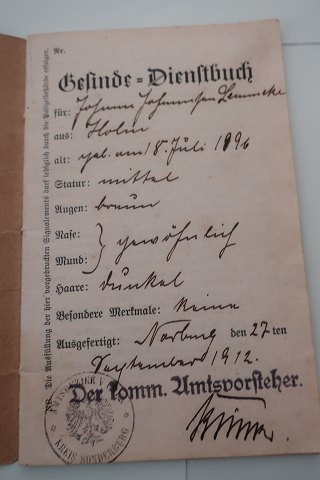 Nr.
Gesinde=Dienstbuch
für: Johann Johannsen Lemmcke
aus: Holm
alt: geb. am 18. Juli 1896
Statur: mittel
Augen: braun
Nase:
Mund: } gewöhnlich
Haare: dunkel
Besondere Merkmale: Keine
Ausgefertigt: Norburg den 27 ten
September 1912.
Der komm. Amtsvorsteher.
KREIS SONDERBURG
NB. Die Ausfüllung der hier vorgedruckten Signalements darf lediglich durch die Polizeibehörde erfolgen.